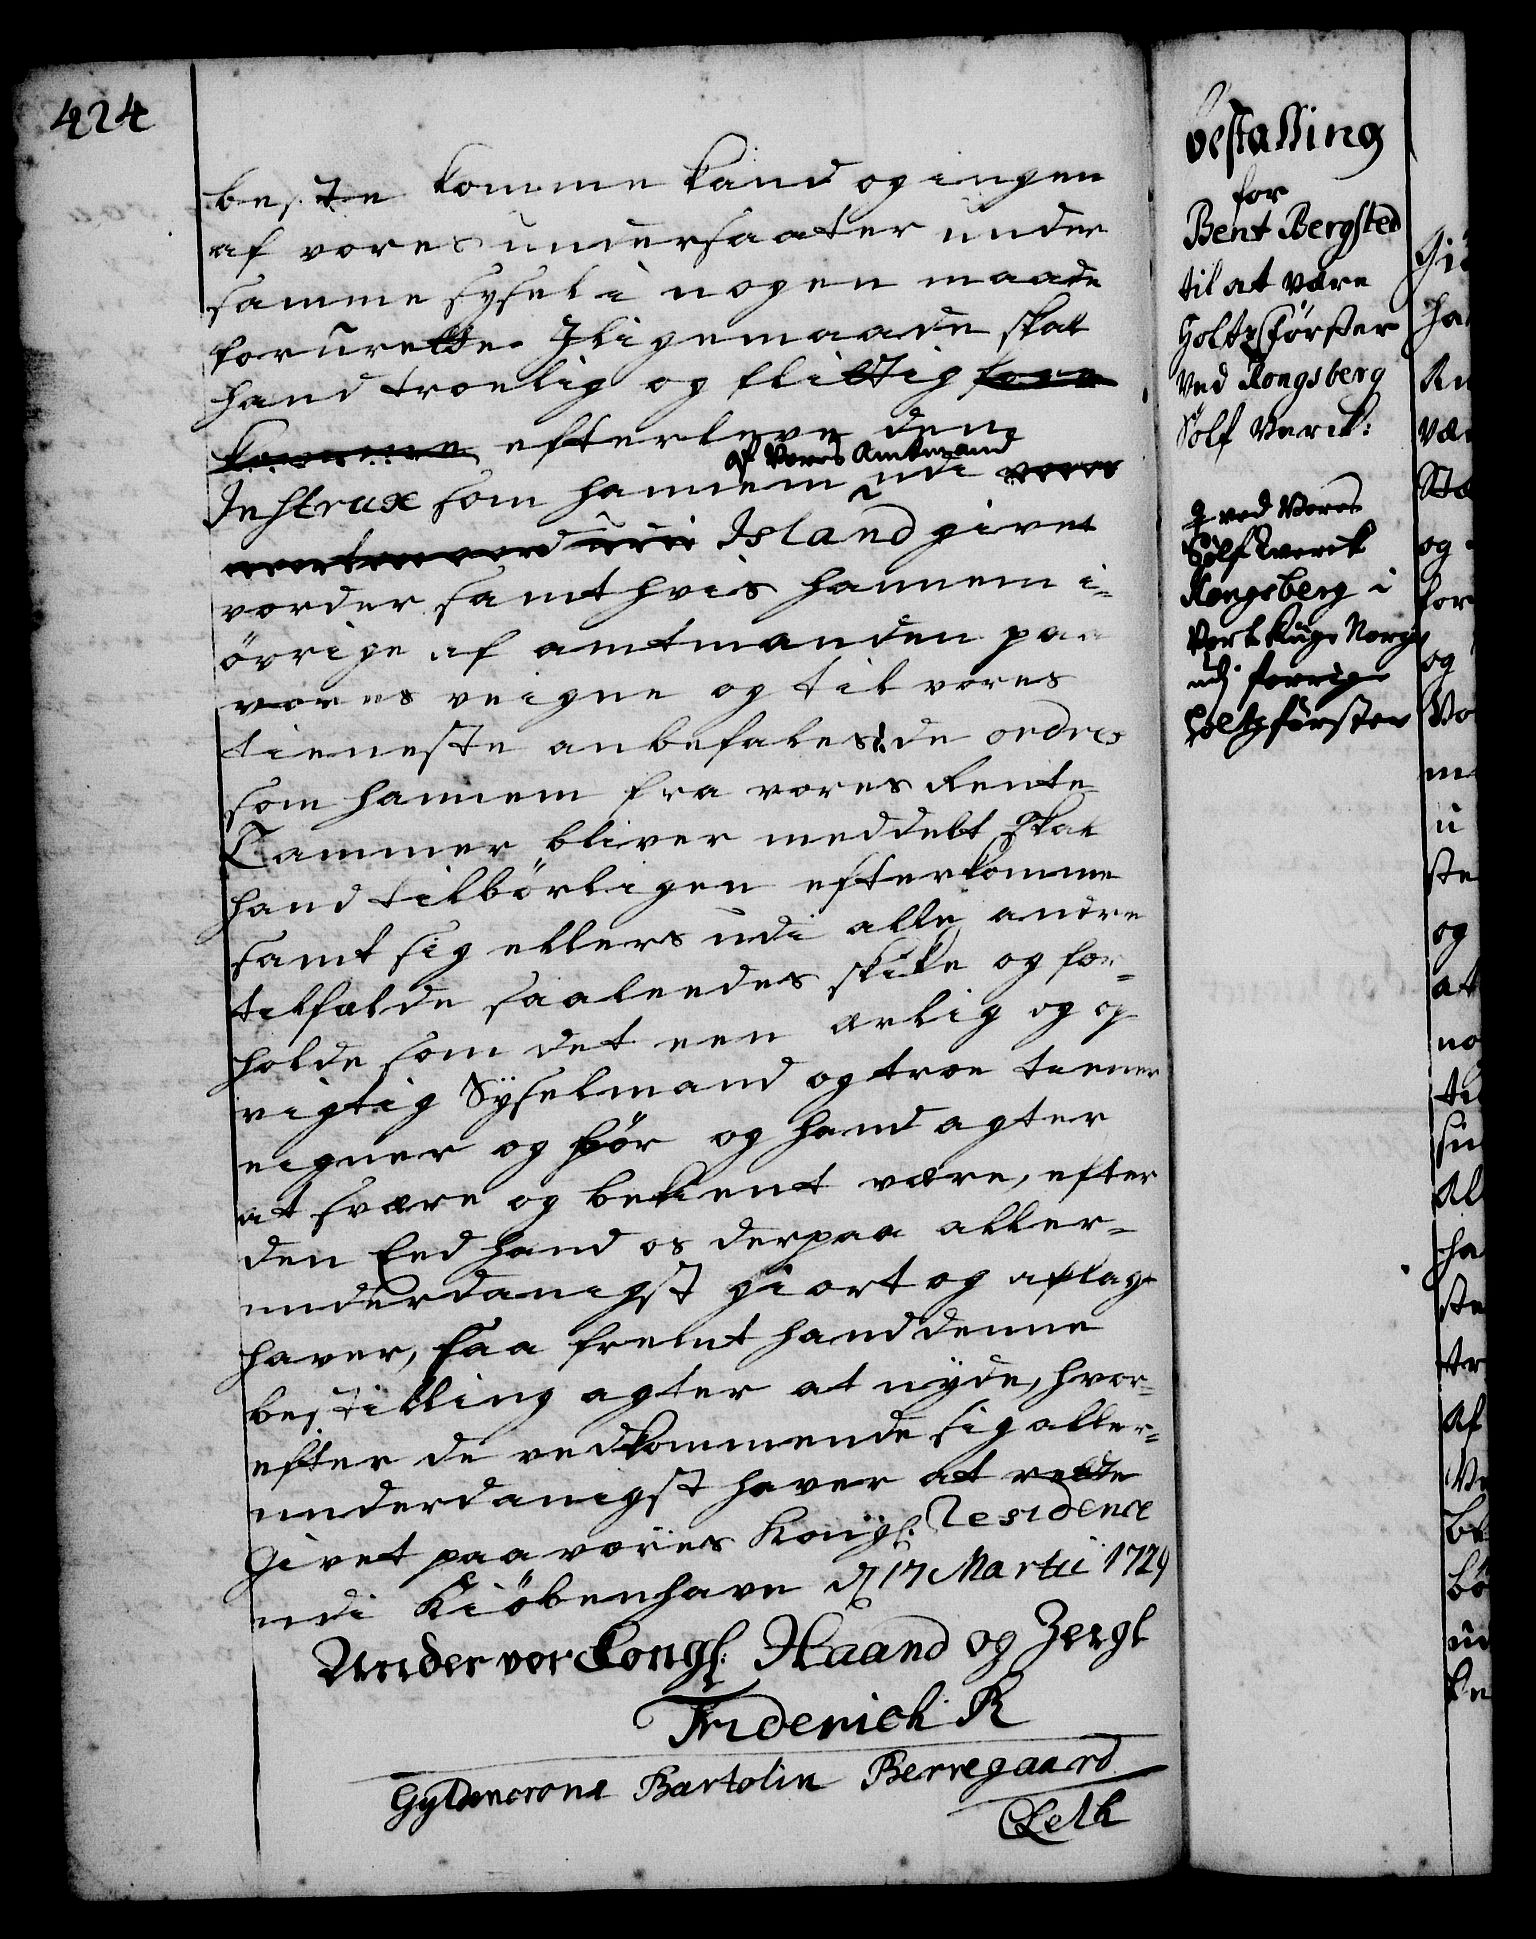 424
beste komme kand og ingen
af vores undersaatter under
samme sysel i nogen maade
forurette. Iligemaade skal
hand troelig og flittig
komme efterleve den
af Vores Amtmand
Instrux som hannem udi vores
Island givet
vorder samt hvis hannem i-
övrige af amtmanden paa
vores veigne og til vores
tieneste anbefales: de ordres
som hannem fra vores Rente
Cammer bliver meddelt skal
hand tilbörligen efterkomme
samt sig ellers udi alle andre
tilfælde saaleedes skike og for-
holde som det een ærlig og op-
rigtig Sysselmand og troe tiener
eigner og bör og hand agter
at svare og bekient være, efter
den Eed hand os derpaa aller-
underdanigst giort og aflagt
haver, saa fremt hand denne
bestilling agter at nyde, hvor-
efter de vedkommende sig aller-
underdanigst haver at rette
Givet paa vores Kongl: Residence
udi Kiöbenhavn d 17 Martii 1729
Under vor Kongl: Haand og Zergl
Friderich R
Gyldencrone Bartolin Berregaard
Leth
Bestalling
for
Bent Bergsted
til at være
Holtzförster
ved Kongsberg
Sölf Verck:
ved Vores
Sölfverck
Kongsberg i
Vort Rüge Norge
udj forrige
Holtzförster
Gi
ha
An
væ
Sta
og
for
og
Vo
m
u
ste
og
at
no
til
sin
Al
ha
ste
tr
Af
Ve
be
bö
un
ke